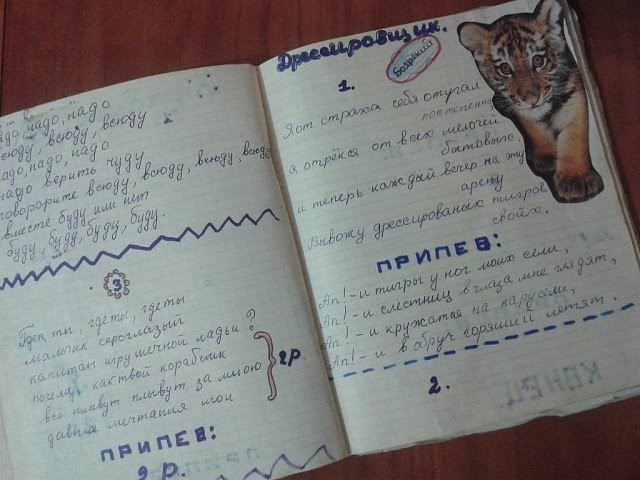 надо, надо, надо
всюду, всюду, всюду
надо, надо, надо
надо верить чуду
говорорите всюду, всюду, всюду, всюду
вместе буду или нет
буду, буду, буду, буду.
3
Где ты, где ты, где ты
мальчик сероглазый
капитан игрушечной ладьи ?
почему как твой кораблик
все плывут плывут за мною
давние мечтания мои
2р.
ПРИПЕВ:
2 р.
Дрессировщик.
Боярский
1.
Я от страха себя отучал
постепенно
я отрёкся от всех мелочей
бытовых
и теперь каждый вечер на эту
арену
Вывожу дрессированых тигров
свойх.
ПРИПЕВ:
Ап! - и тигры у ног моих сели,
Ап! - и с лестниц в глаза мне глядят,
Ап! - и кружатся на карусели,
Ап! - и в обруч горящий летят.
2.
КОНЕЦ